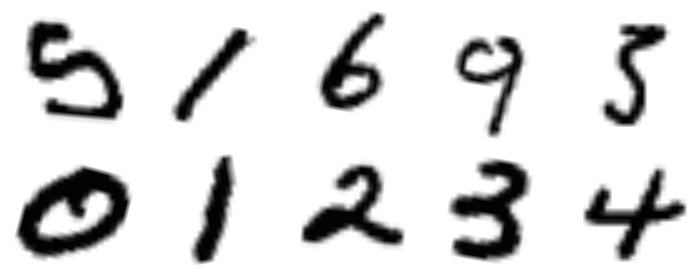 5 1 6 9 3
0 1 2 3 4